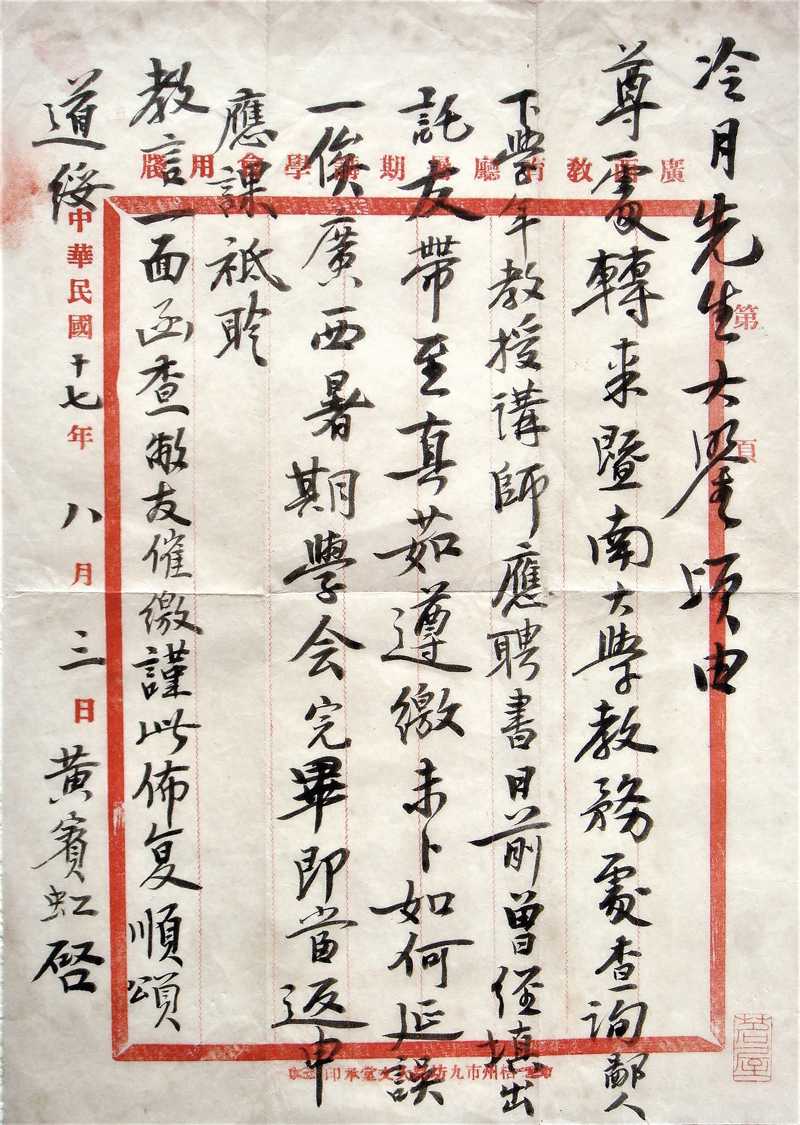 冷月先生大鑒頃由
尊處轉來暨南大學教務處查詢鄙人
下學年教授講師應聘書目前曾經填出
託友帶至真茹遵繳未卜如何延誤
一俟廣西暑期學会完畢即當返申
應課祗聆
教言一面函查敝友催繳謹此佈复順頌
道綏
中華民國十七年八月三日 黃賓虹啓
廣西教育廳暑期講學會用牋
第頁